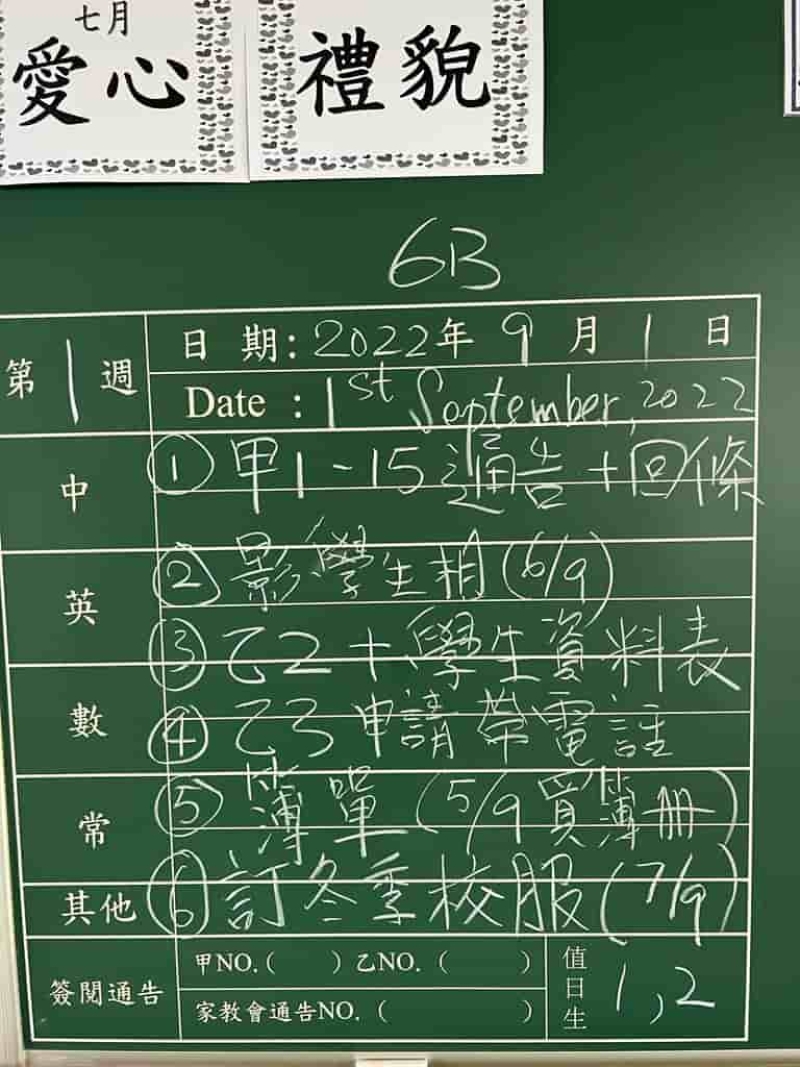 七月
愛心
禮貌
6B
第1週
日期：2022年9月1日
Date : 1st September, 2022
中
① 甲1-15通告+回條
英
② 影學生相(6/9)
③ 乙2+學生資料表
數
④ 乙3申請帶電話
常
⑤ 簿單(5/9買簿冊)
其他
⑥ 訂冬季校服(7/9)
簽閱通告
甲NO.( ) 乙NO. ( )
家教會通告NO. ( )
值日生 1,2